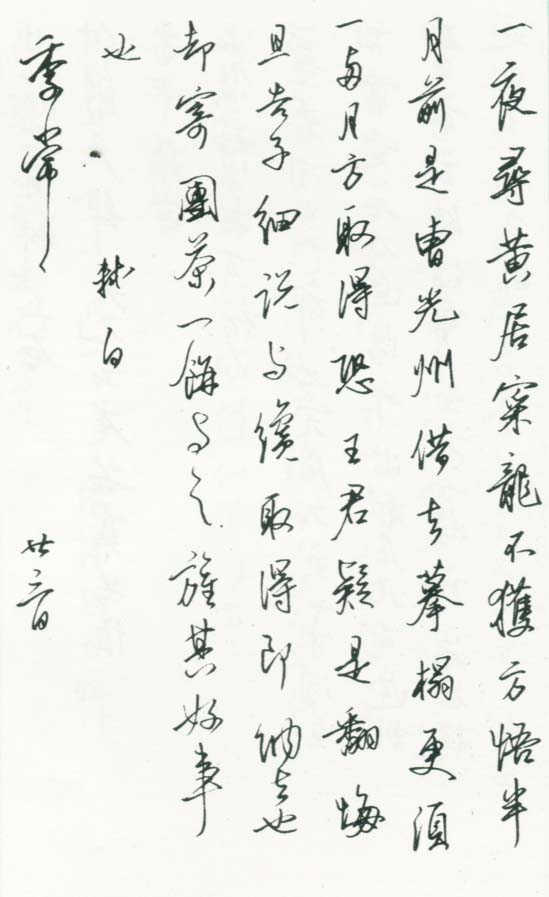 一夜尋黃居寀龍不獲方悟半
月前是曹光州借去摹搨更須
一兩月方取得恐王君疑是翻悔
且告子細說与纔取得即納去也
却寄團茶一餅与之旌其好事
也 軾白
季常 廿三日